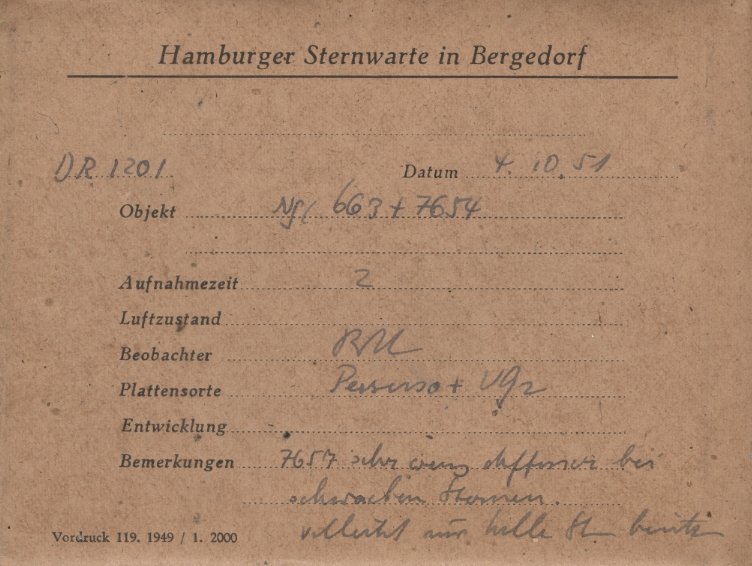 Hamburger Sternwarte in Bergedorf
DR 1201 Datum 4. 10. 51
Objekt 663 + 7654
Aufnahmezeit 2
Luftzustand
Beobachter
Plattensorte + UG2
Entwicklung
Bemerkungen 7654 sehr wenig bei
schwachen Sternen.
nur helle St
Vordruck 119. 1949 / 1. 2000